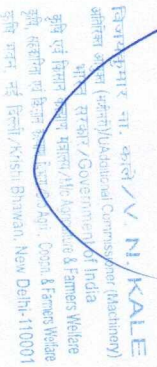 विजयकुमार ना. काले / V. N. KALE
अपर आयुक्त (मशीनरी)/Additional Commissioner (Machinery)
भारत सरकार / Government of India
कृषि एवं किसान कल्याण मंत्रालय / M/o Agriculture & Farmers Welfare
कृषि, सहकारिता एवं किसान कल्याण विभाग / D/o Agri., Coopn. & Farmers Welfare
कृषि भवन, नई दिल्ली/Krishi Bhawan, New Delhi-110001